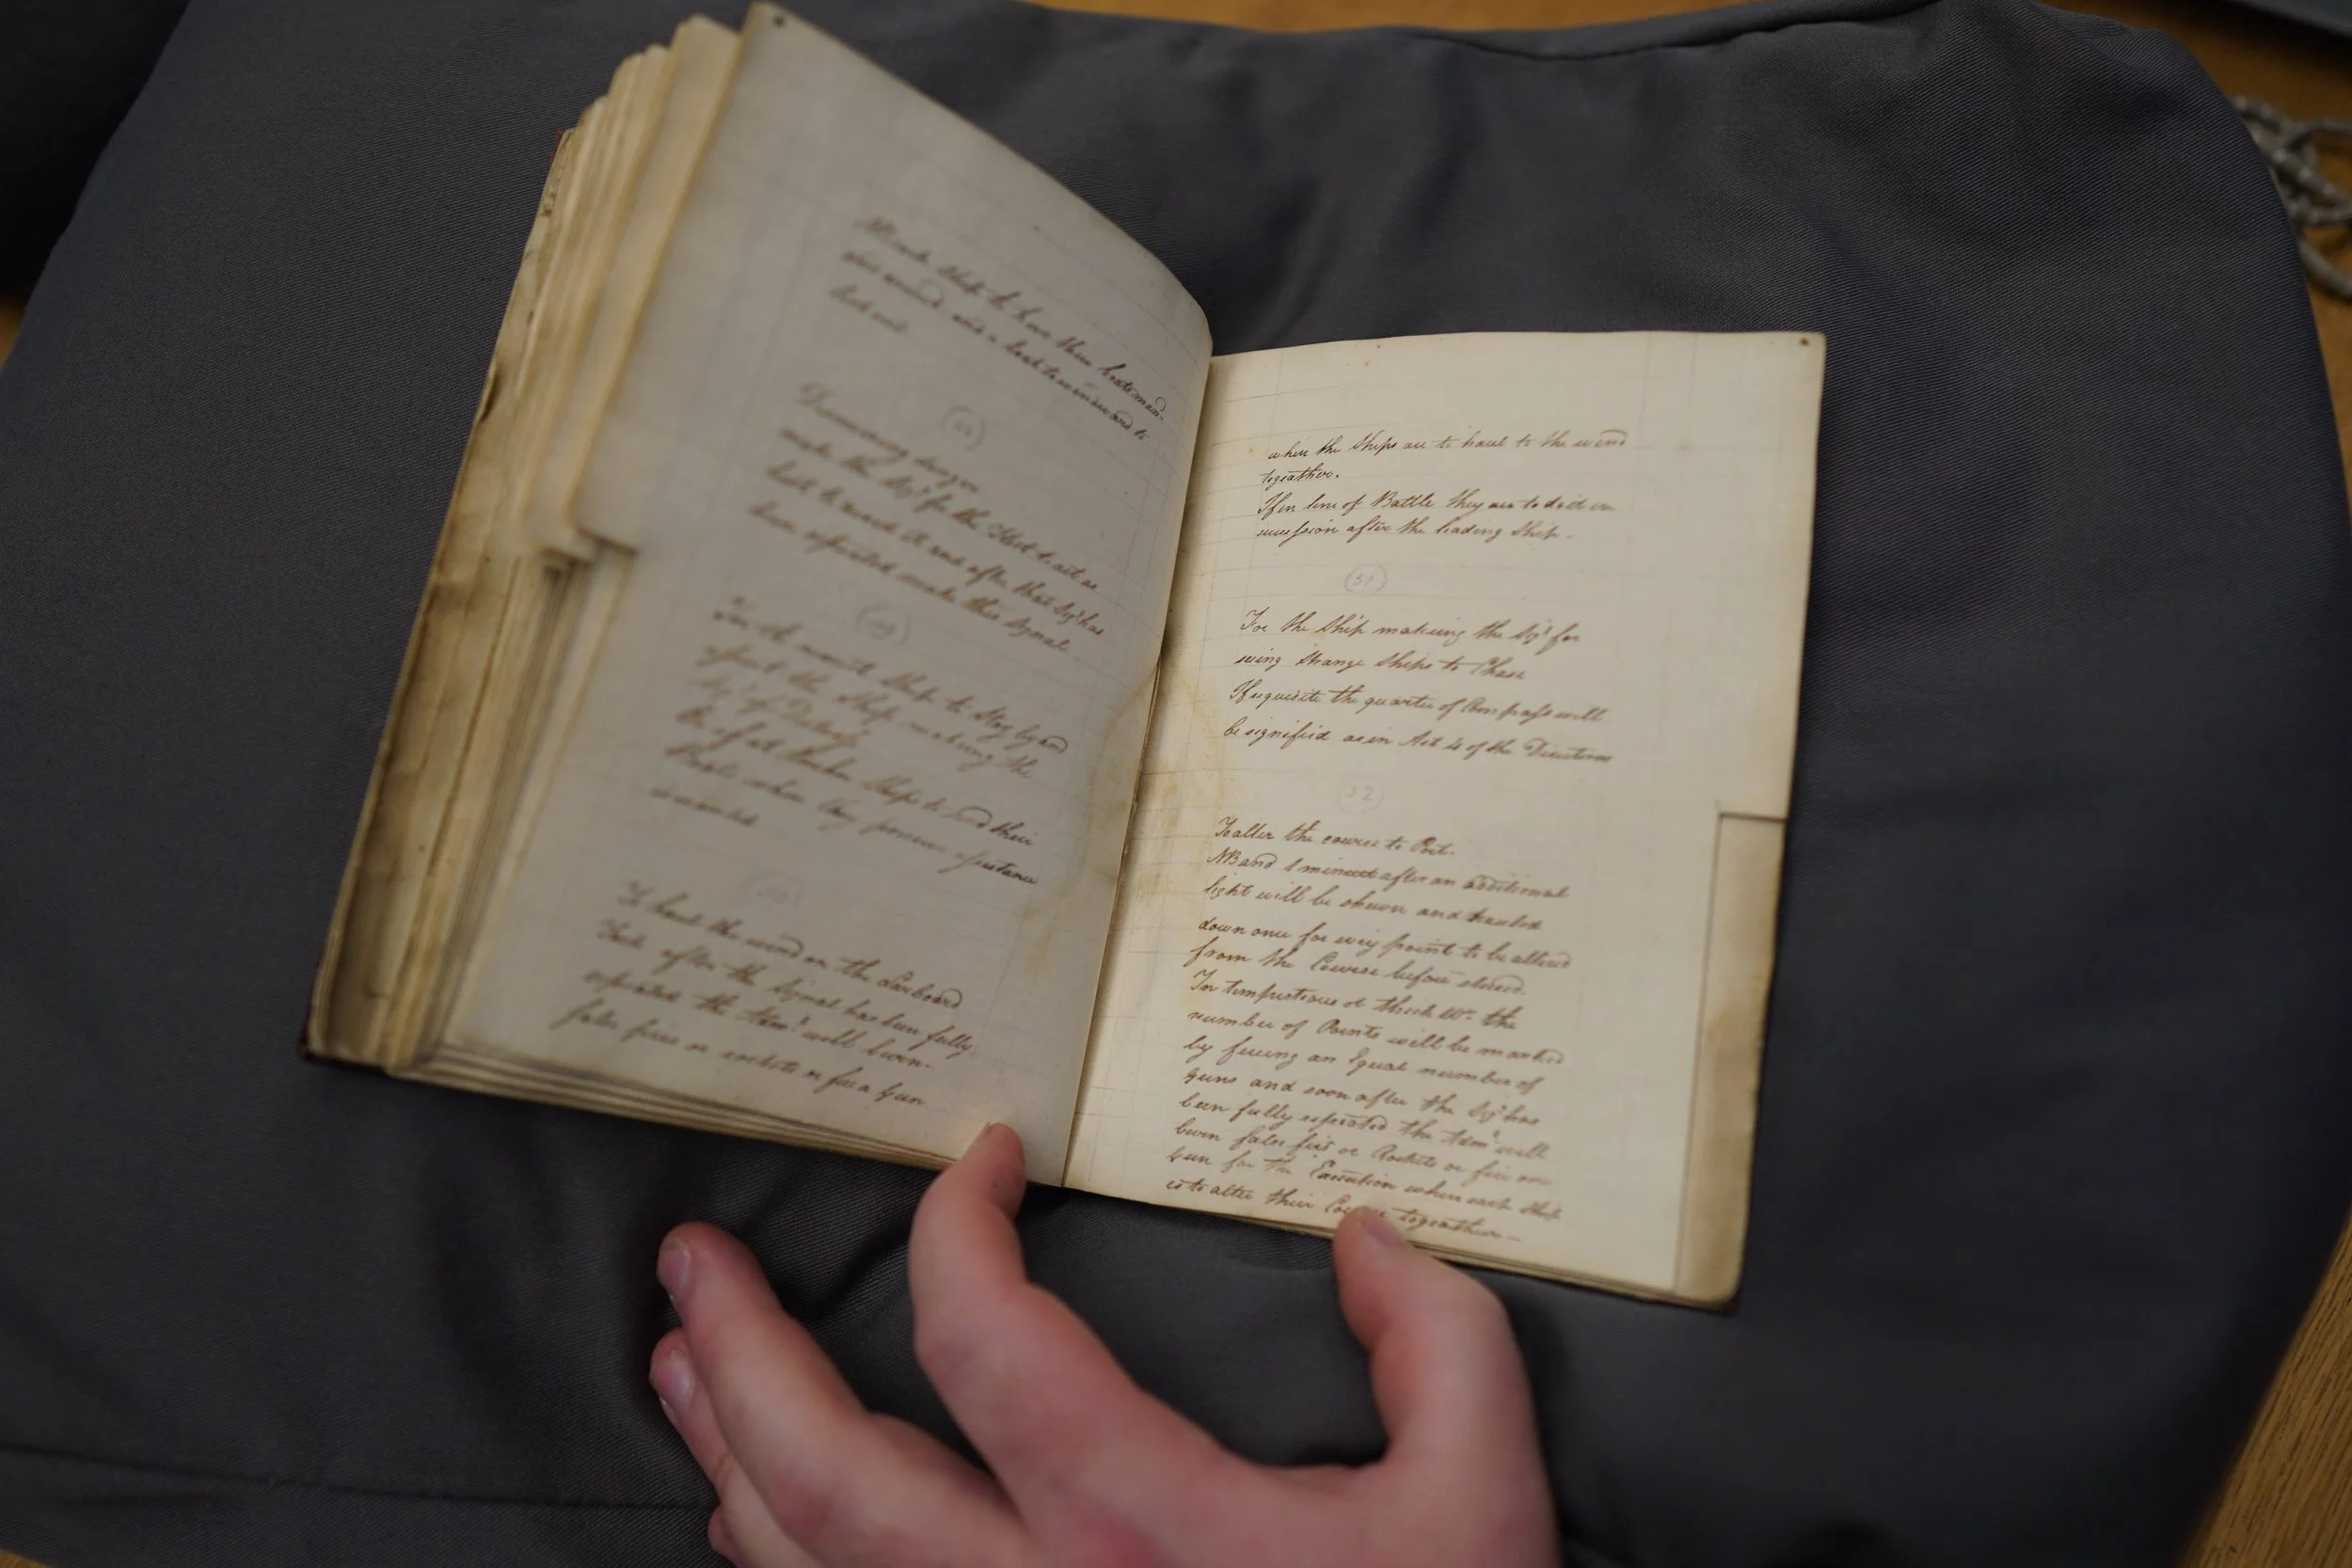 Ships to have their boats man-
and a boat to windward to
look out.
(48)
Discovering danger
make the Sigl for the Fleet to act as
best to avoid it and after that Sigl has
been repeated make this Signal
(49)
For the nearest Ship to Stay by and
assist the Ship making the
Sigl of Distress
Ships to send their
Boats when they perceive assistance
is wanted
(50)
To haul the wind on the Larboard
Tack after the Signal has been fully
repeated the Adml will burn
false fires or rockets or fire a Gun
when the Ships are to haul to the wind
togeather.
If in line of Battle they are to do it in
succession after the leading Ship.
(51)
For the Ship making the Sigl for
seing strange Ships to Chase
If requisite the quarter of Compass will
be signified as in Art 4 of the Directions
(52)
To alter the course to Port.
NB and 1 minuet after an additional
light will be shewn and hauled
down once for every point to be altered
from the Course before steered.
In tempestious or thick Wr. the
number of Points will be marked
by fireing an Equal number of
Guns and soon after the Sigl has
been fully repeated the Adml will
burn false fires or Rockets or fire one
Gun for the Execution when each Ship
is to alter their Course togeather—